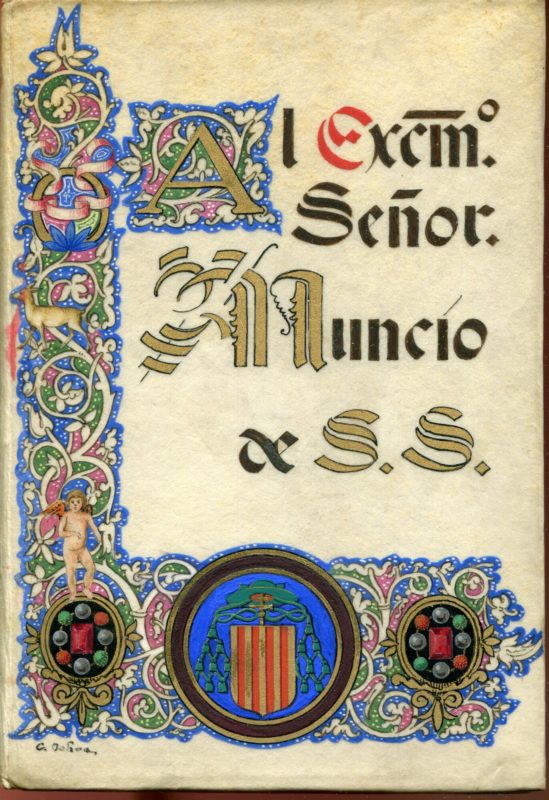 Al Excm̅º.
Señor.
Nuncio
de S. S.
C. Ochoa,